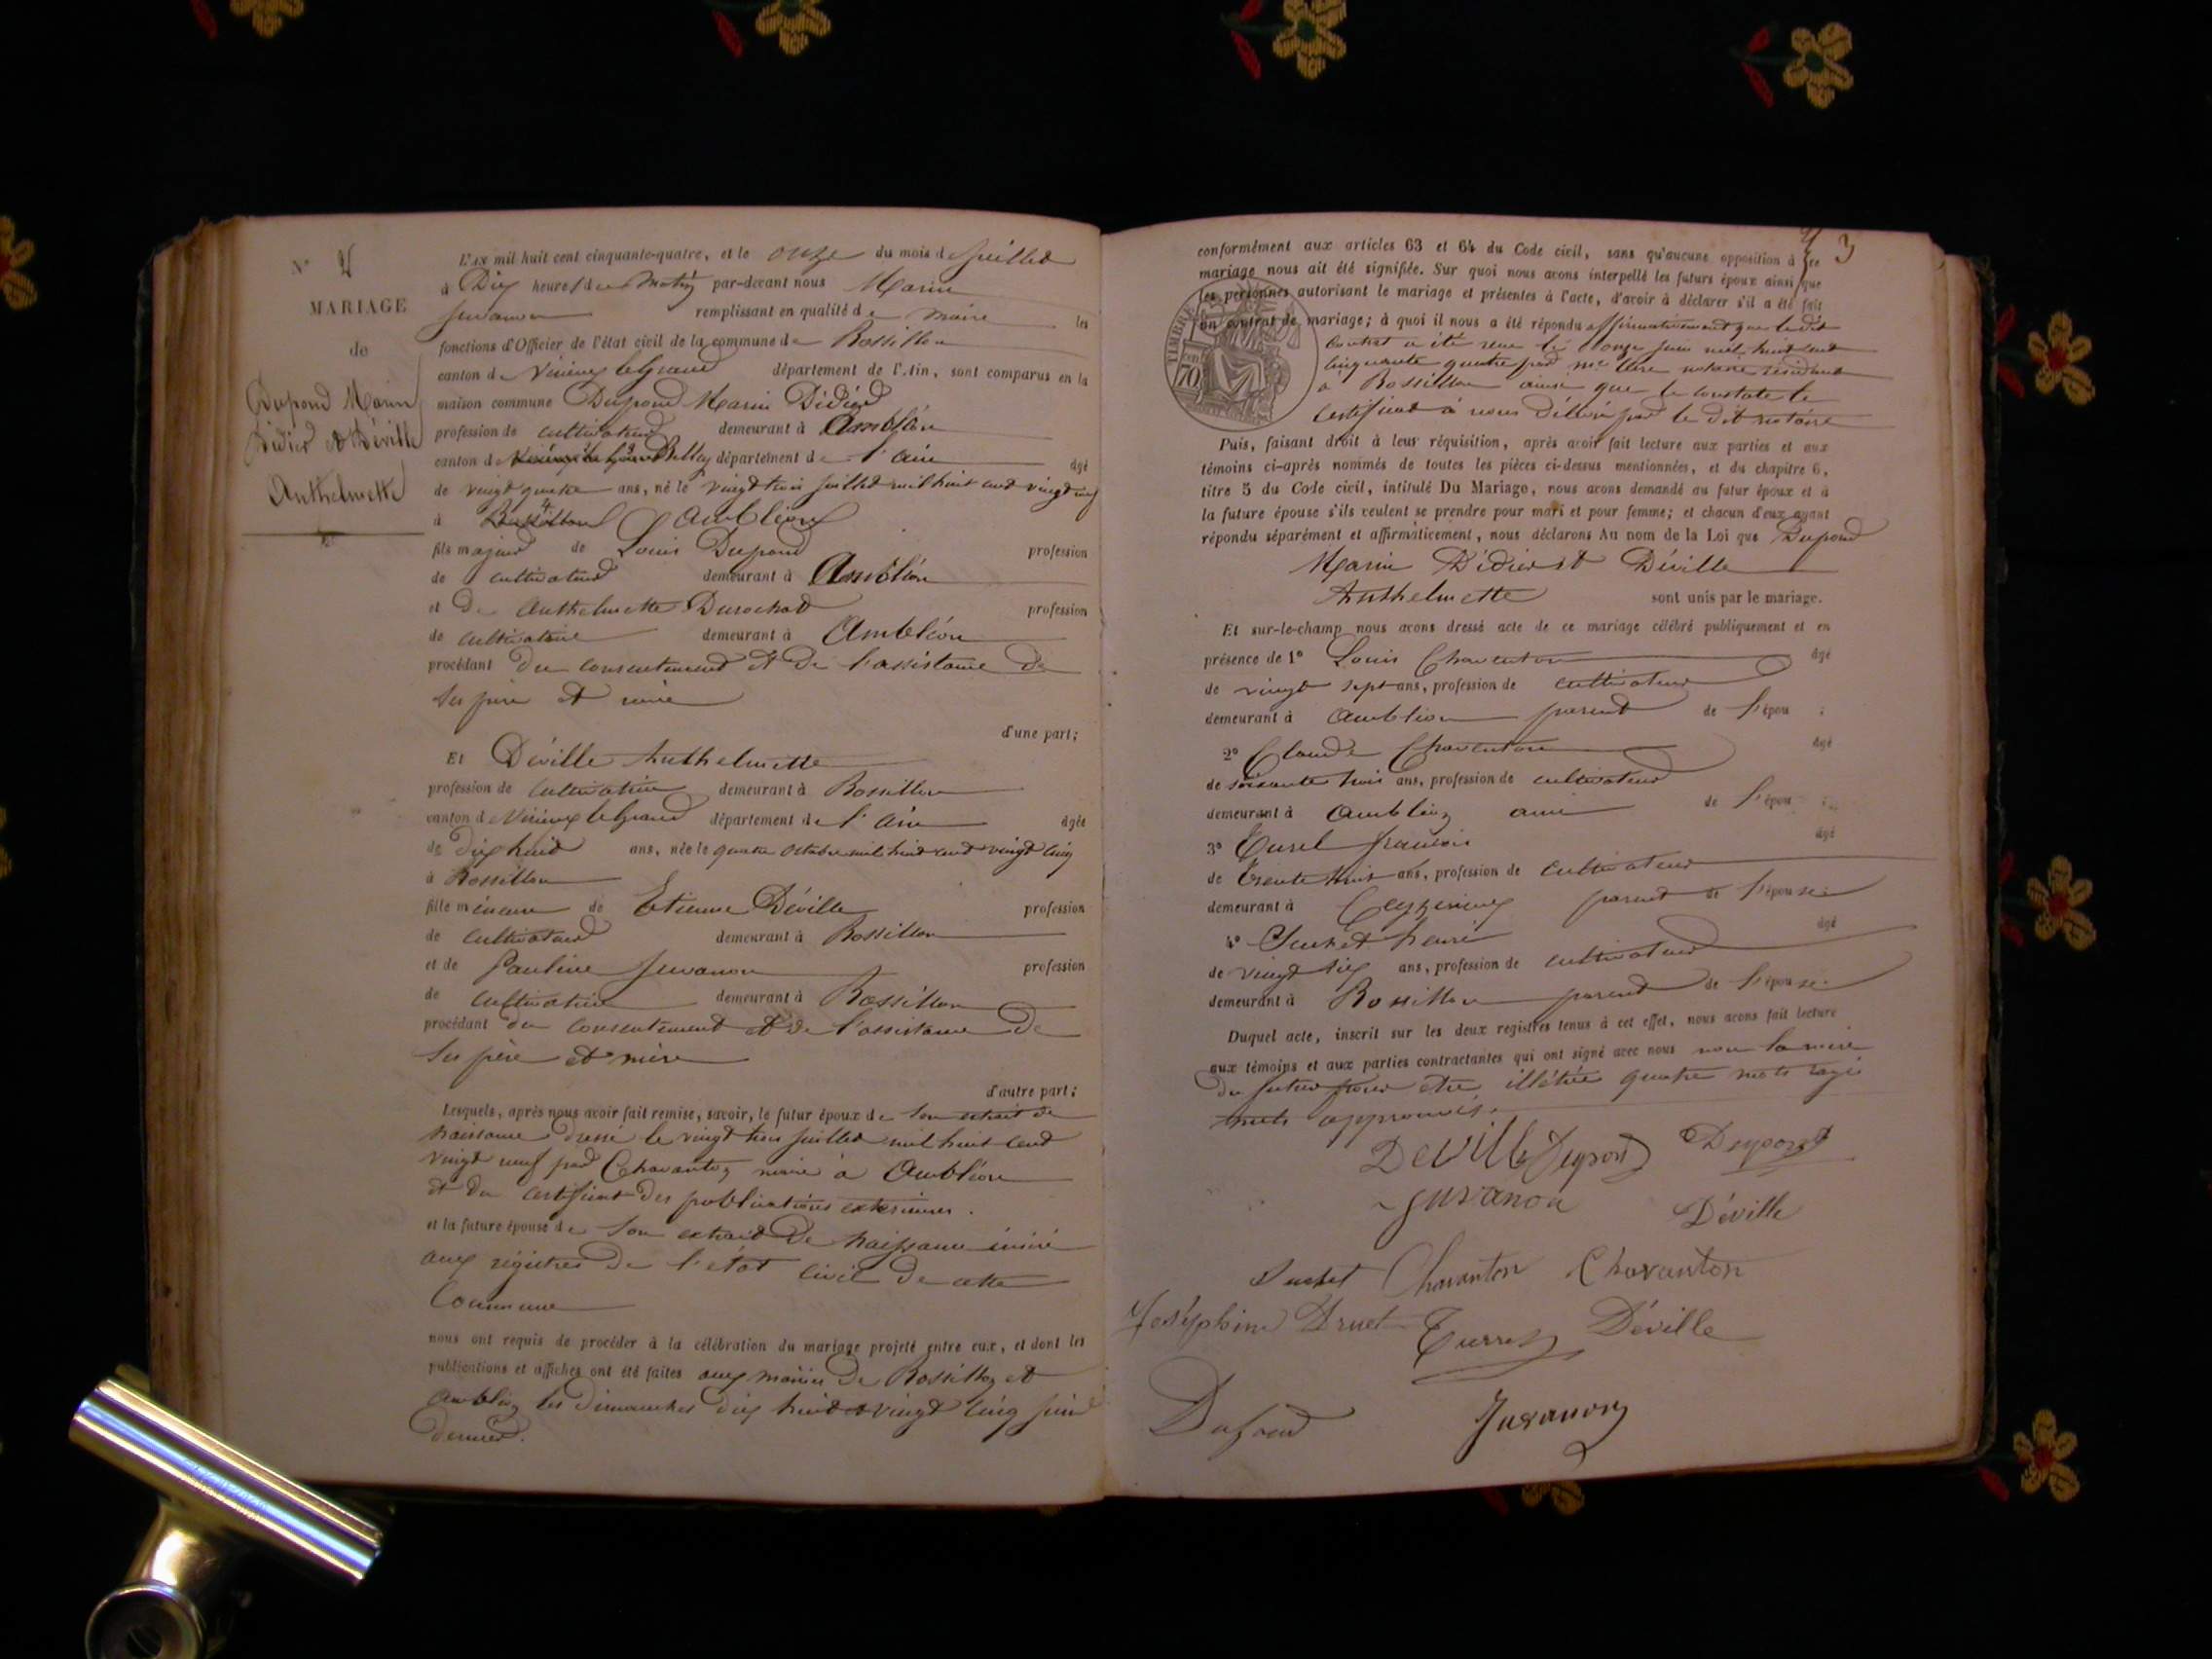 N° 2
MARIAGE
de
Dupond Marin
Didier et Déville
Anthelmette
L'an mil huit cent cinquante-quatre, et le onze du mois de juillet
à Dix heures du matin par-devant nous Marin
Juvanon remplissant en qualité de maire les
fonctions d'Officier de l'état civil de la commune de Rossillon
canton de Virieux le Grand département de l'Ain, sont comparus en la
maison commune Dupond Marin Didier
profession de cultivateur demeurant à Ambléon
canton de Virieux le Grand Belley département de l'ain âgé
de vingt quatre ans, né le vingt trois juillet mil huit cent vingt neuf
à Rossillon Ambléon
fils majeur de Louis Dupond profession
de cultivateur demeurant à Ambléon
et de Anthelmette Durochat profession
de cultivatrice demeurant à Ambléon
procédant du consentement et de l'assistance de
ses père et mère
d'une part;
Et Déville Anthelmette
profession de cultivatrice demeurant à Rossillon
canton de Virieux le Grand département de l'ain âgée
de dix huit ans, née le quatre octobre mil huit cent vingt cinq
à Rossillon
fille mineure de Etienne Déville profession
de cultivateur demeurant à Rossillon
et de Pauline Juvanon profession
de cultivatrice demeurant à Rossillon
procédant du consentement et de l'assistance de
ses père et mère
d'autre part;
Lesquels, après nous avoir fait remise, savoir, le futur époux de son extrait de
naissance dressé le vingt trois juillet mil huit cent
vingt neuf par Chavanton maire à Ambléon
et du certificat des publications extérieures.
et la future épouse de son extrait de naissance inséré
aux régistres de l'état civil de cette
Commune
nous ont requis de procéder à la célébration du mariage projeté entre eux, et dont les
publications et affiches ont été faites aux mairies de Rossillon et
Ambléon les dimanches dix huit et vingt cinq juin
dernier.
3
conformément aux articles 63 et 64 du Code civil, sans qu'aucune opposition à ce
mariage nous ait été signifiée. Sur quoi nous avons interpellé les futurs époux ainsi que
les personnes autorisant le mariage et présentes à l'acte, d'avoir à déclarer s'il a été fait
un contrat de mariage; à quoi il nous a été répondu affirmativement que le dit
contrat a été reçu le onze juin mil huit cent
cinquante quatre par me notaire résidant
à Rossillon ainsi que le constate le
certificat à nous délivré par le dit notaire
TIMBRE
70
Puis, faisant droit à leur réquisition, après avoir fait lecture aux parties et aux
témoins ci-après nommés de toutes les pièces ci-dessus mentionnées, et du chapitre 6,
titre 5 du Code civil, intitulé Du Mariage, nous avons demandé au futur époux et à
la future épouse s'ils veulent se prendre pour mari et pour femme; et chacun d'eux ayant
répondu séparément et affirmativement, nous déclarons Au nom de la Loi que Dupond
Marin Didier et Déville
Anthelmette sont unis par le mariage.
Et sur-le-champ nous avons dressé acte de ce mariage célébré publiquement et en
présence de 1° Louis Chavanton âgé
de vingt sept ans, profession de cultivateur
demeurant à Ambléon parent de l'épou ;
2° Claude Chavanton âgé
de soixante trois ans, profession de cultivateur
demeurant à Ambléon ami de l'épou ;
3° François âgé
de Trente huit ans, profession de cultivateur
demeurant à Ceyzérieux parent de l'épouse;
4° Suchet henri âgé
de vingt six ans, profession de cultivateur
demeurant à Rossillon parent de l'épouse.
Duquel acte, inscrit sur les deux registres tenus à cet effet, nous avons fait lecture
aux témoins et aux parties contractantes qui ont signé avec nous non la mère
du futur pour être illétrée quatre mots rayé
nuls approuvés.
Deville Dupond Dupond
Juvanon Déville
Suchet Chavanton Chavanton
Joséphine Druet Déville
Dufour Juvanon